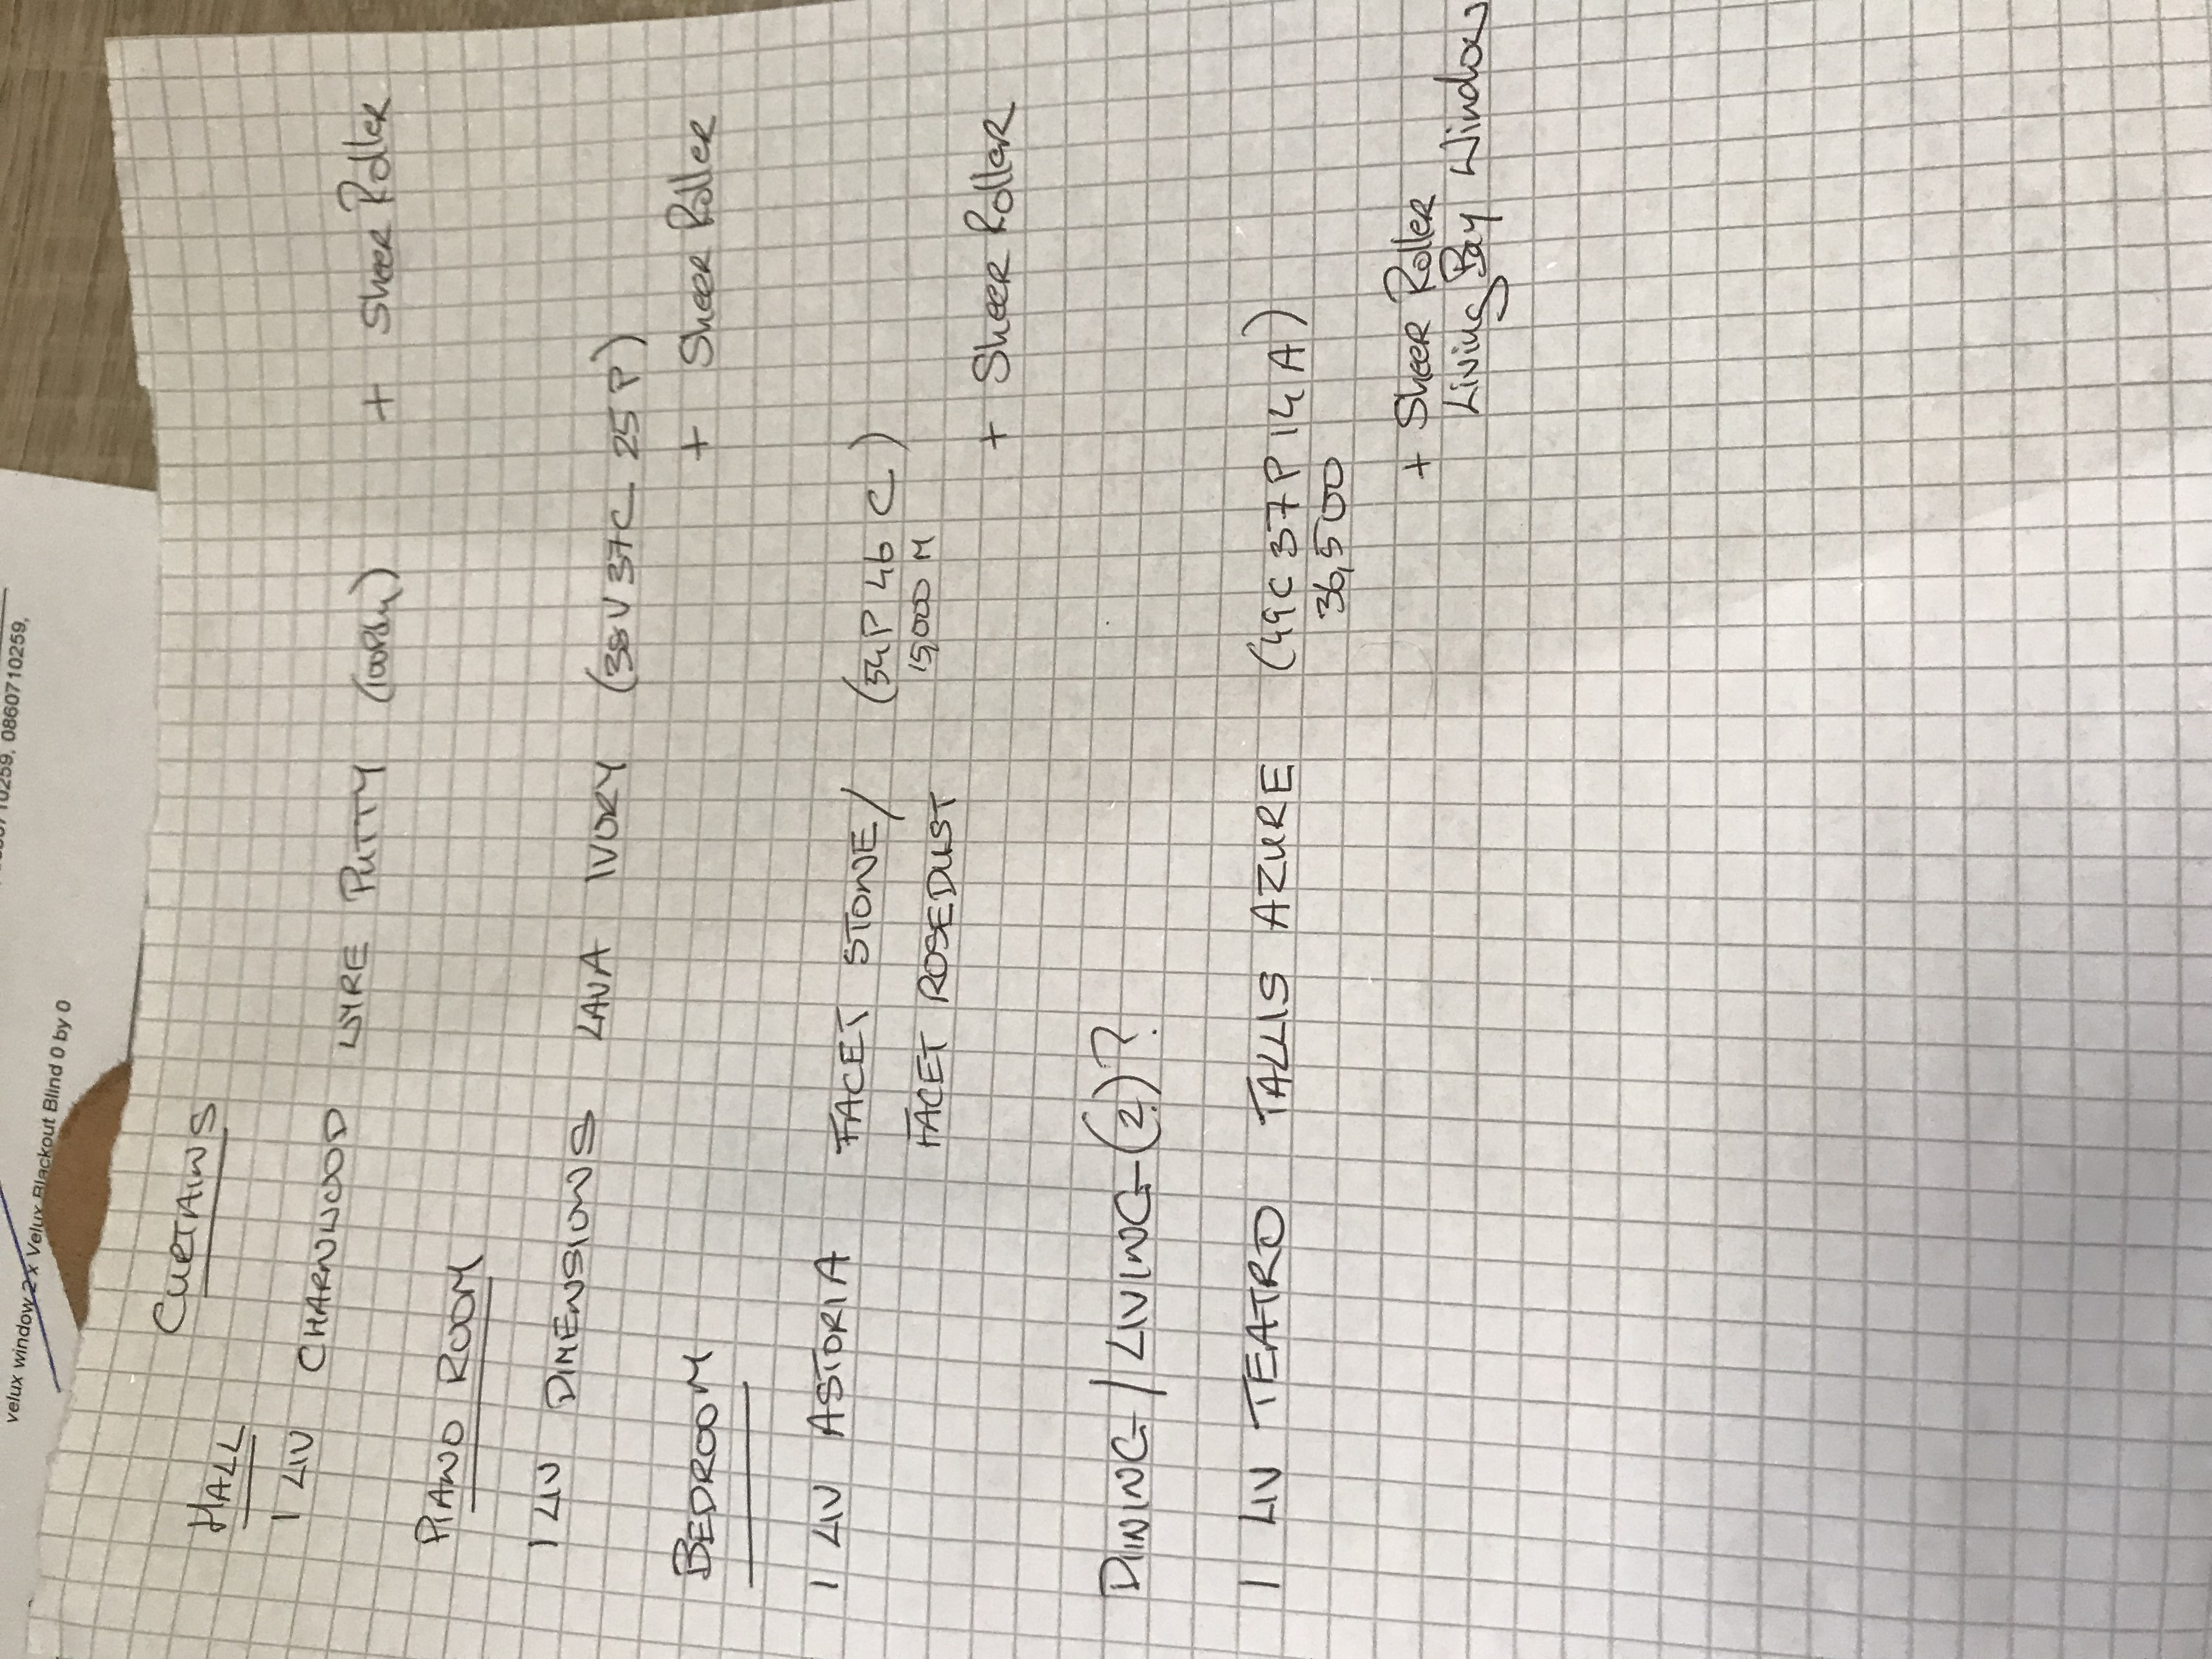 CURTAINS
HALL
1 LIV CHARNWOOD WYRE PUTTY (100Poly) + Sheer Roller
PIANO ROOM
1 LIV DIMENSIONS LAVA IVORY (38V 37C 25P)
+ Sheer Roller
BEDROOM
1 LIV ASTORIA FACET STONE/ (54P 46C)
FACET ROSEDUST 15,000 M
+ Sheer Roller
DINING / LIVING (2)?
1 LIV TEATRO TALLIS AZURE (49C 37P 14A)
36,500
+ Sheer Roller
Living Bay Window
velux window 2 x Velux Blackout Blind 0 by 0
0259, 0860710259,